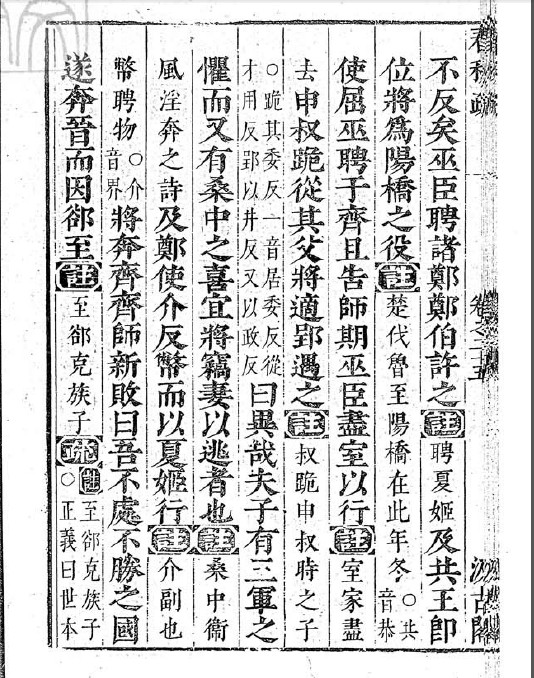 春秋疏 卷之二十五 汲古閣
不反矣巫臣聘諸鄭鄭伯許之註聘夏姬及共王卽
位將爲陽橋之役註楚伐魯至陽橋在此年冬○共音恭
使屈巫聘于齊且告師期巫臣盡室以行註室家盡
去申叔跪從其父將適郢遇之註叔跪申叔時之子
○跪其委反一音居委反從才用反郢以井反又以政反曰異哉夫子有三軍之
懼而又有桑中之喜宜將竊妻以逃者也註桑中衛
風淫奔之詩及鄭使介反幣而以夏姬行註介副也
幣聘物○介音界將奔齊齊師新敗曰吾不處不勝之國
遂奔晉而因郤至註至郤克族子疏註至郤克族子○正義曰世本